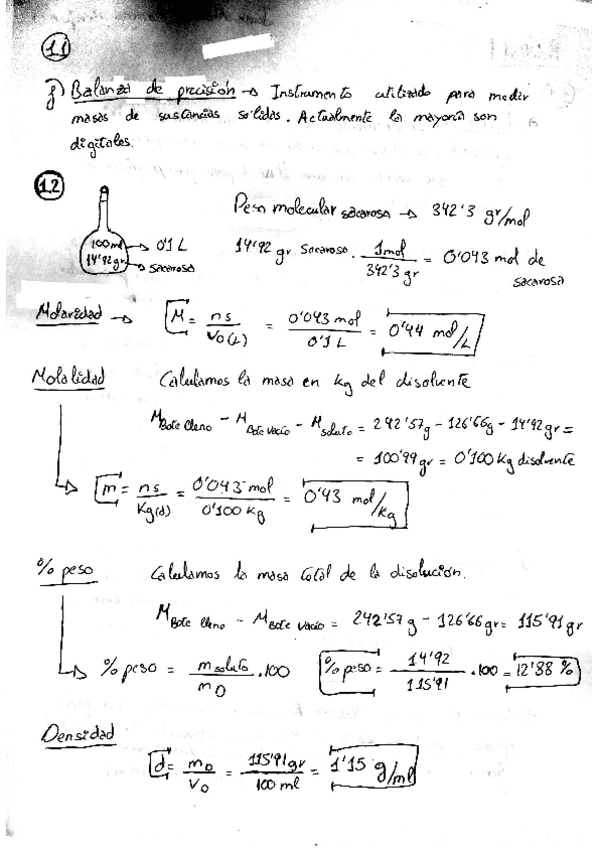 1.1
f) Balanza de precisión → Instrumento utilizado para medir
masas de sustancias solidas. Actualmente la mayoría son
digitales.
1.2
100ml → 0'1 L
14'92 gr → sacarosa
Peso molecular sacarosa → 342'3 gr/mol
14'92 gr sacarosa · 1mol / 342'3 gr = 0'043 mol de
sacarosa
Molaridad → M = ns / Vo(L) = 0'043 mol / 0'1 L = 0'44 mol/L
Molalidad Calculamos la masa en kg del disolvente
M Bote lleno - M Bote vacío - M soluto = 242'57g - 126'66g - 14'92gr =
= 100'99 gr = 0'100 Kg disolvente
m = ns / Kg(d) = 0'043 mol / 0'100 Kg = 0'43 mol/Kg
% peso Calculamos la masa total de la disolución.
M Bote lleno - M Bote vacío = 242'57 g - 126'66 gr = 115'91 gr
% peso = m soluto / mD · 100 % peso = 14'92 / 115'91 · 100 = 12'88 %
Densidad
d = mD / VD = 115'91 gr / 100 ml = 1'15 g/ml